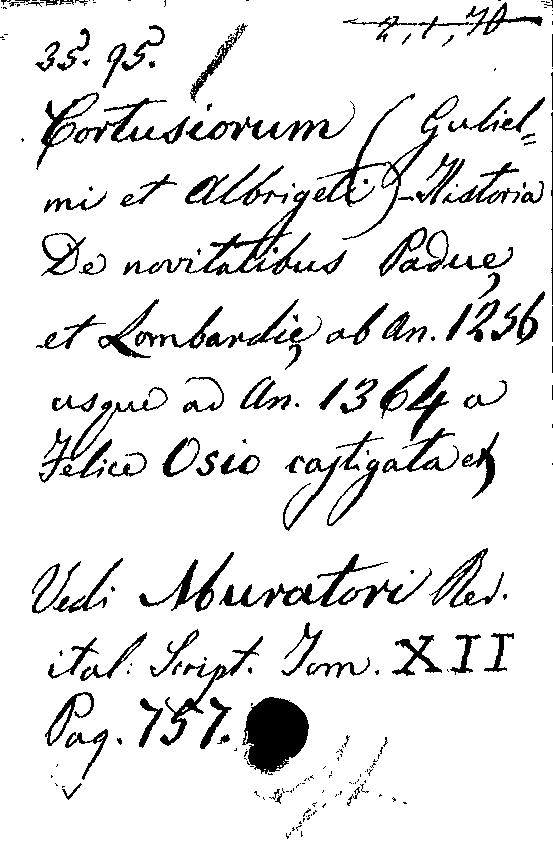 2,1,70
35. 95.
Cortusiorum (Guliel=
mi et Albrigeti) Historia
De novitatibus Paduę
et Lombardię ab An. 1256
usque ad An. 1364 a
Felice Osio castigata et
Vedi Muratori Rer.
ital: Script. Tom. XII
Pag. 757.